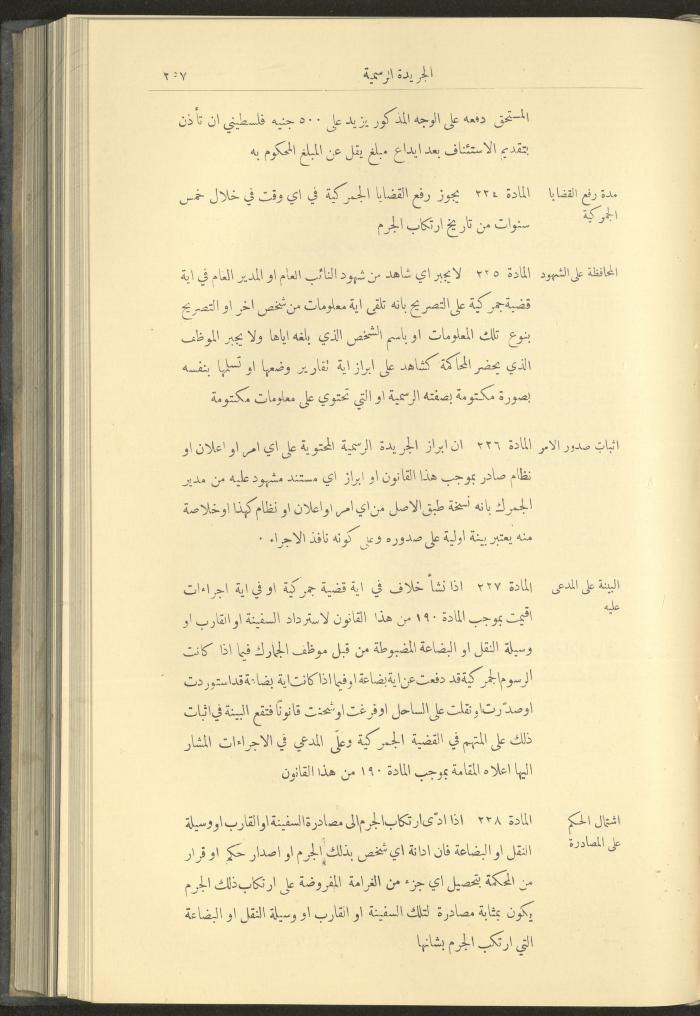 الجريدة الرسمية
٢٥٧
المستحق دفعه على الوجه المذكور يزيد على ٥٠٠ جنيه فلسطيني ان تأذن
بتقديم الاستئناف بعد ايداع مبلغ يقل عن المبلغ المحكوم به
مدة رفع القضايا
الجمركية
المادة ٢٣٤ يجوز رفع القضايا الجمركية في اي وقت في خلال خمس
سنوات من تاريخ ارتكاب الجرم
المحافظة على الشهود
المادة ٢٣٥ لا يجبر اي شاهد من شهود النائب العام او المدير العام في اية
قضية جمركية على التصريح بانه تلقى اية معلومات من شخص اخر او التصريح
بنوع تلك المعلومات او باسم الشخص الذي بلغه اياها ولا يجبر الموظف
الذي يحضر المحاكمة كشاهد على ابراز اية تقارير وضعها او تسلمها بنفسه
بصورة مكتومة بصفته الرسمية او التي تحتوي على معلومات مكتومة
اثبات صدور الامر
المادة ٢٣٦ ان ابراز الجريدة الرسمية المحتوية على اي امر او اعلان او
نظام صادر بموجب هذا القانون او ابراز اي مستند مشهود عليه من مدير
الجمرك بانه نسخة طبق الاصل من اي امر او اعلان او نظام كهذا او خلاصة
منه يعتبر بينة اولية على صدوره وعلى كونه نافذ الاجراء .
البينة على المدعى
عليه
المادة ٢٣٧ اذا نشأ خلاف في اية قضية جمركية او في اية اجراءات
اقيمت بموجب المادة ١٩٠ من هذا القانون لاسترداد السفينة او القارب او
وسيلة النقل او البضاعة المضبوطة من قبل موظف الجمارك فيما اذا كانت
الرسوم الجمركية قد دفعت عن اية بضاعة او فيما اذا كانت اية بضاعة قد استوردت
او صدّرت او نقلت على الساحل او فرغت او شحنت قانوناً فتقع البينة في اثبات
ذلك على المتهم في القضية الجمركية وعلى المدعي في الاجراءات المشار
اليها اعلاه المقامة بموجب المادة ١٩٠ من هذا القانون
اشتمال الحكم
على المصادرة
المادة ٢٣٨ اذا ادّى ارتكاب الجرم الى مصادرة السفينة او القارب او وسيلة
النقل او البضاعة فان ادانة اي شخص بذلك الجرم او اصدار حكم او قرار
من المحكمة بتحصيل اي جزء من الغرامة المفروضة على ارتكاب ذلك الجرم
يكون بمثابة مصادرة لتلك السفينة او القارب او وسيلة النقل او البضاعة
التي ارتكب الجرم بشانها